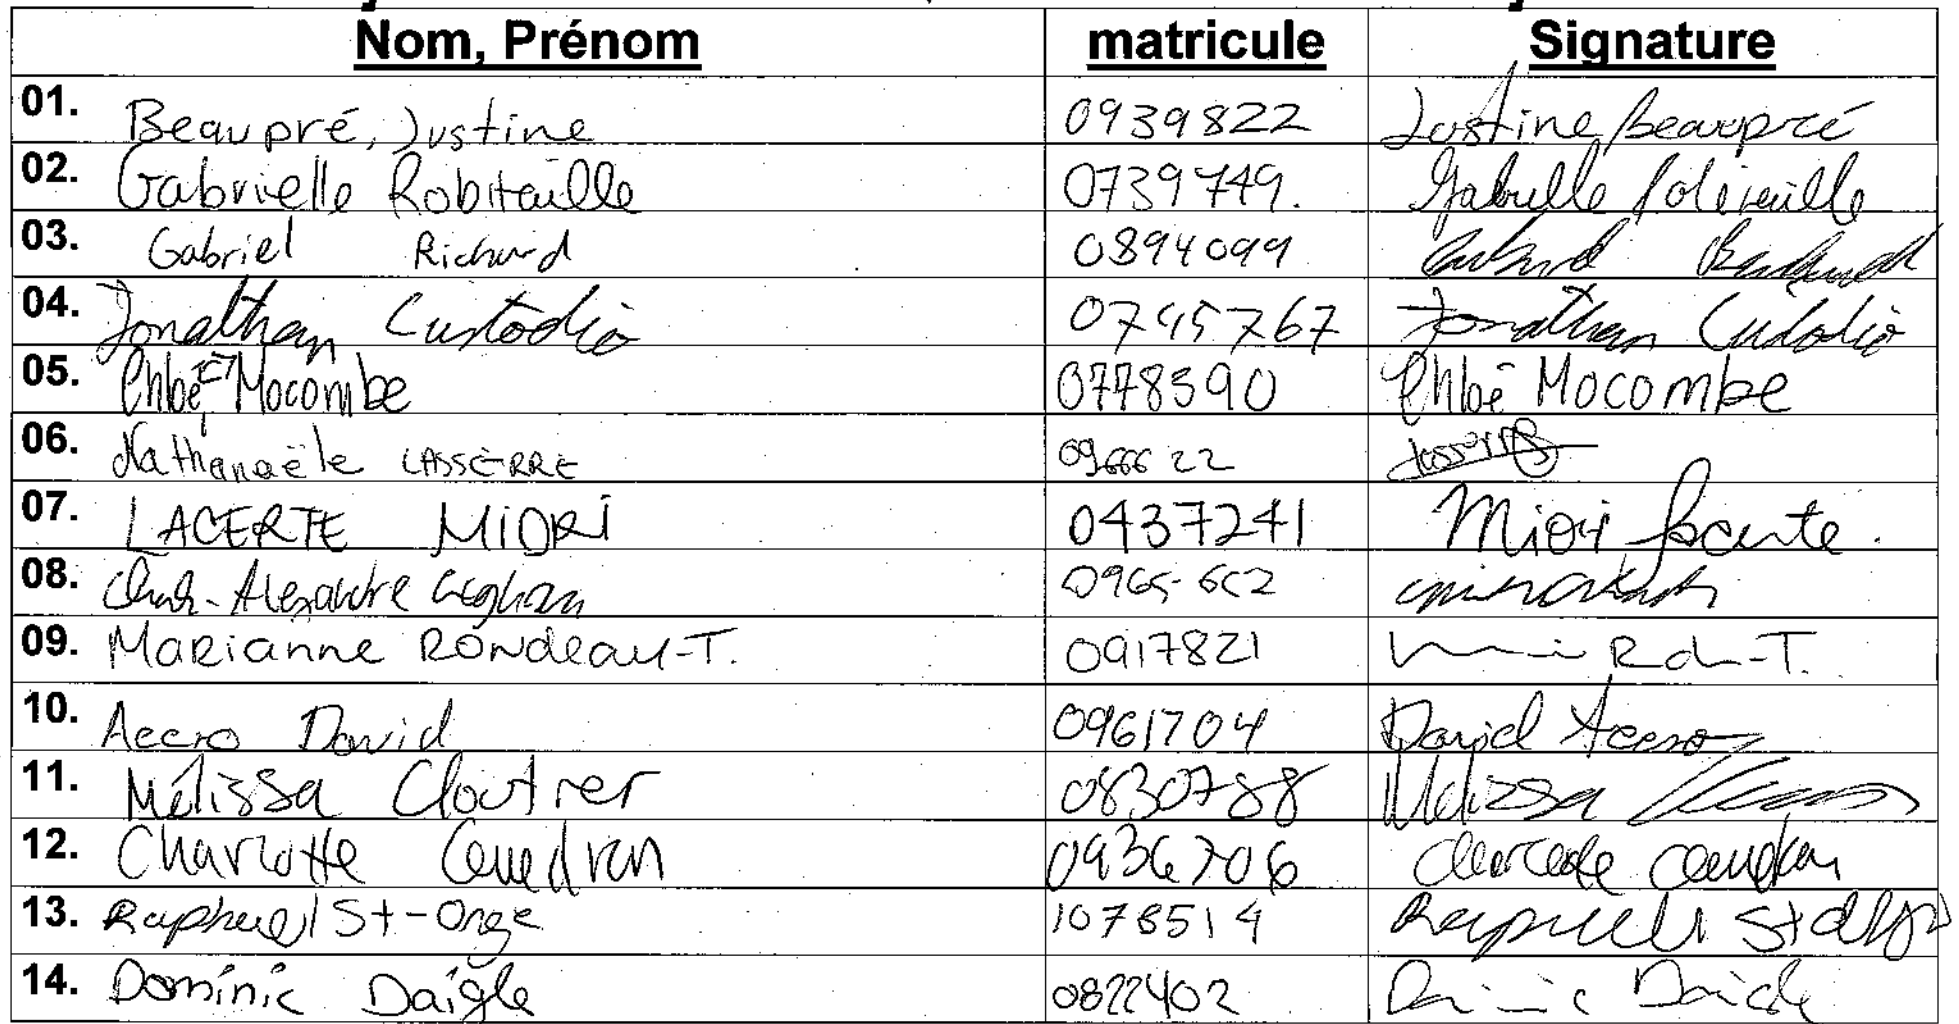 Nom, Prénom matricule Signature
01. Beaupré, Justine 0939822 Justine Beaupré
02. Gabrielle Robitaille 0739749. Gabrielle Robitaille
03. Gabriel Richard 0894099
04. Jonathan Custodio 0745767 Jonathan Custodio
05. Chloé Mocombe 0778390 Chloé Mocombe
06. Nathanaële LASSERRE 0966622
07. LACERTE MIORI 0437241 Miori Lacerte.
08. Alexandre
09. Marianne Rondeau-T. 0917821
10. Acero David 0961704 David Acero
11. Mélissa Cloutier 0830788 Mélissa
12. Charlotte Gendron 0936706 Charlotte Gendron
13. Raphael St-Onge 1078514 Raphael
14. Dominic Daigle 0822402 Daigle